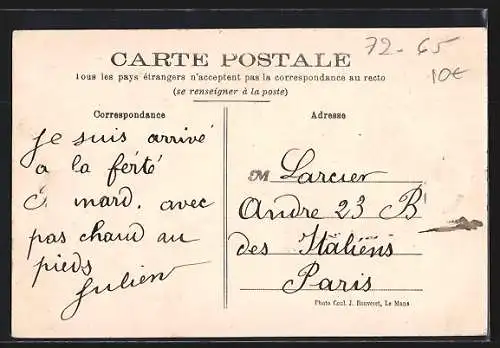 72-65
10€
CARTE POSTALE
Tous les pays étrangers n'acceptent pas la correspondance au recto
(se renseigner à la poste)
Correspondance
Je suis arrivé
a la ferté
avec
pas chaud au
pieds
Julien
Adresse
M Larcier
Andre 23 B
des Italiens
Paris
Photo Coul. J. Bouveret, Le Mans